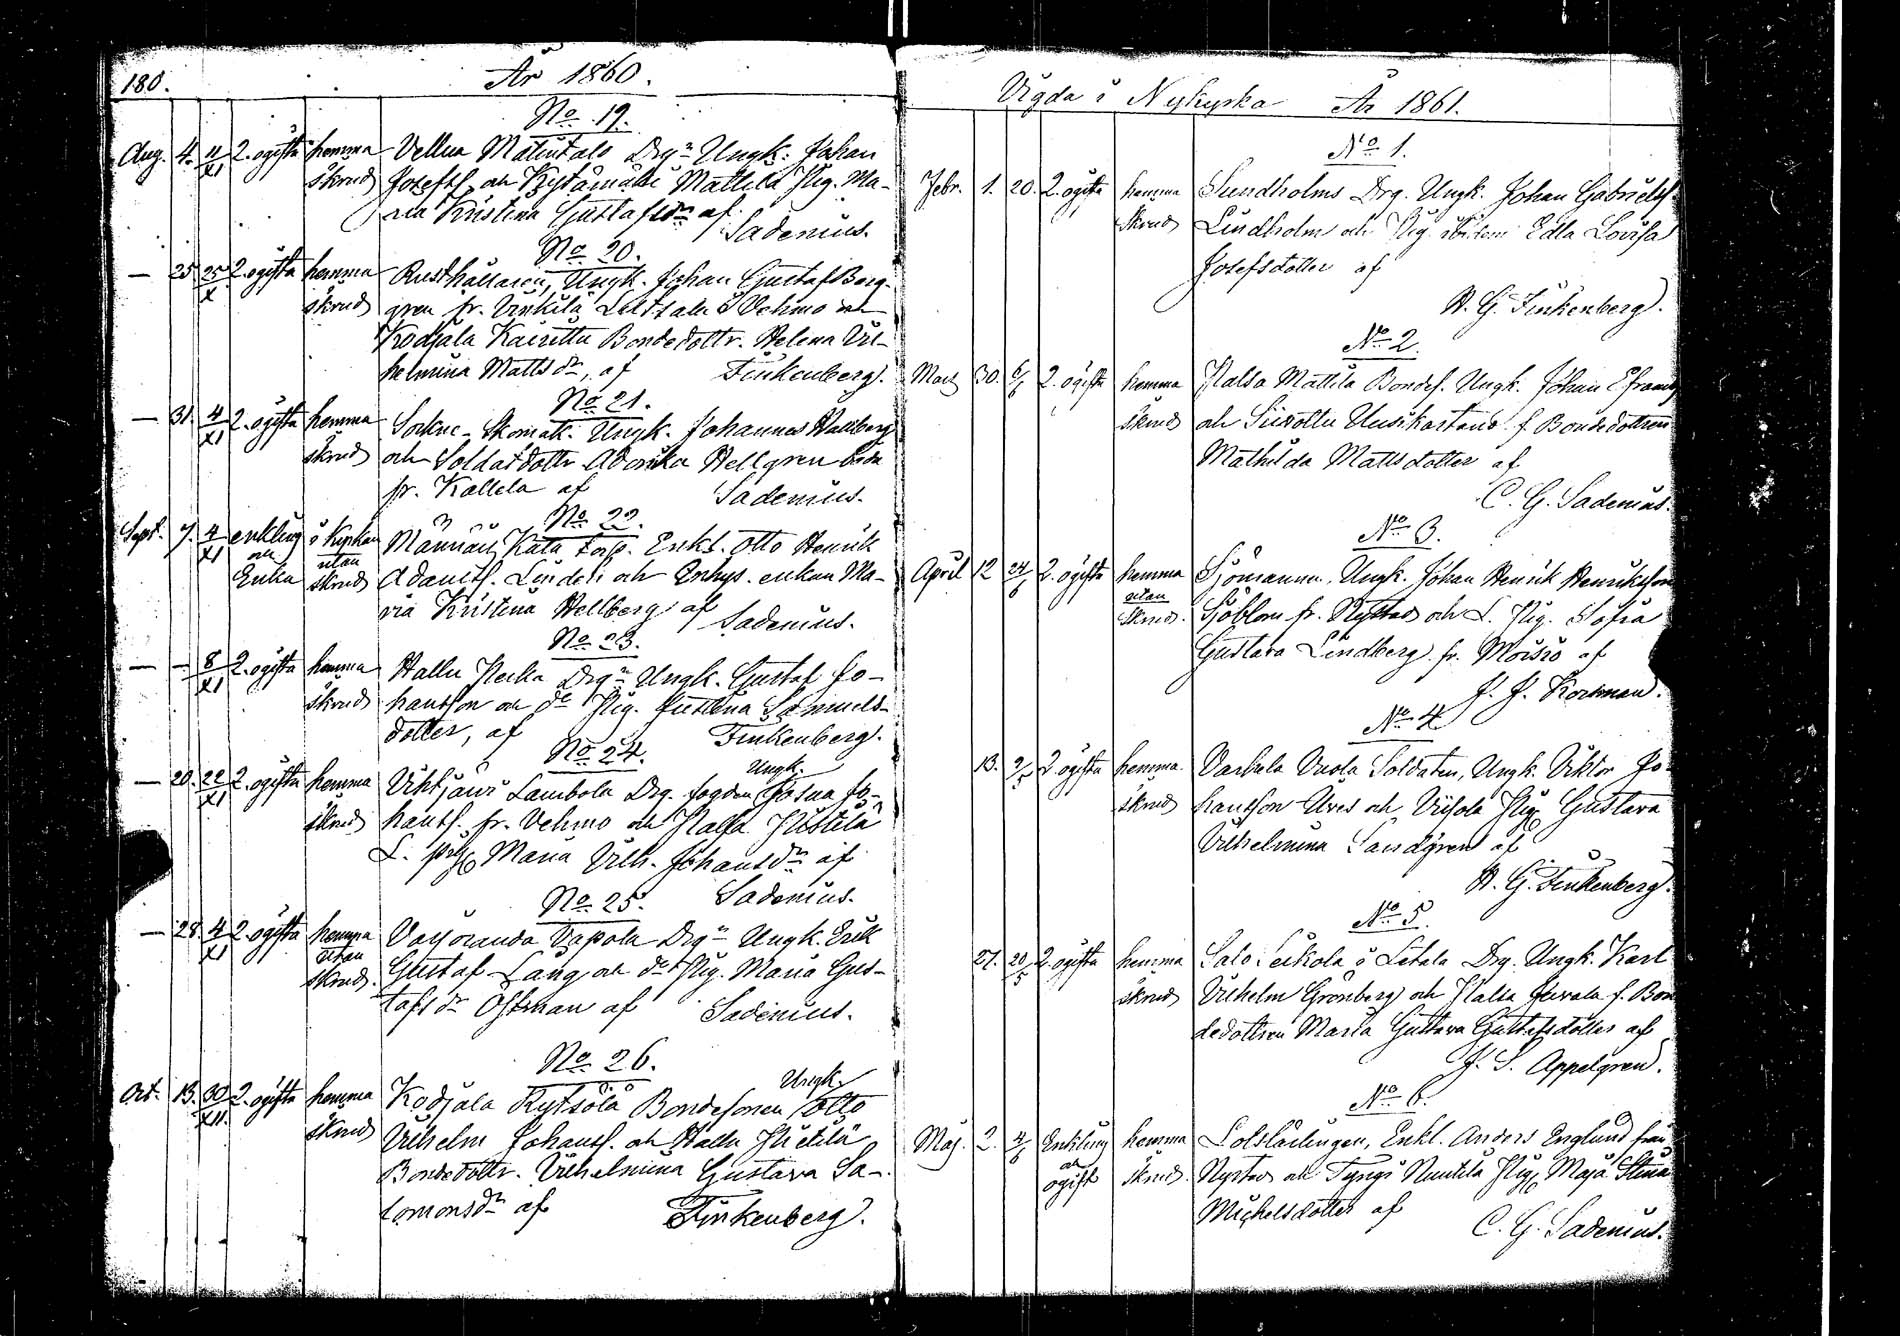 180. År 1860.
No 19.
Aug. 4. 11/XI 2. ogifta hemma Vellua Matintalo Drgn Ungk. Johan
skrud Josefss. och Kytämäki Mattila Pig. Ma-
ria Kristina Gustafsdr af
Sadenius.
No 20.
— 25 25/X 2. ogifta hemma Rusthållaren, Ungk. Johan Gustaf Berg-
skrud gren fr. Vinkilä i Vehmo och
Kodjala Kairettu Bondedottr. Helena Vil-
helmina Mattsdr, af Finkenberg.
No 21.
— 31. 4/XI 2. ogifta hemma Sockne-Skomak. Ungk. Johannes Hallberg
skrud och Soldatdottr. Hellgren båda
fr. Kallela af Sadenius.
No 22.
Sept. 7. 4/XI enkling i Kyrkan Männäis Kata Torp. Enkl. Otto Henrik
och utan
Enka skrud Adamss. Lindell och Enhys. enkan Ma-
ria Kristina Hellberg af Sadenius.
No 23.
— — 8/XI 2. ogifta hemma Hallu Heikka Drgn Ungk. Gustaf Jo-
skrud hansson och do Pig. Justina Samuels-
dotter, af Finkenberg.
No 24.
Ungk.
— 20. 22/XI 2. ogifta hemma Vihtjärvi Lambola Drg. fogden Josua Jo-
skrud hanss. fr. Vehmo och Palsa
L. pig Maria Vilh. Johansdr af
Sadenius.
No 25.
— 28. 4/XI 2. ogifta hemma Varjoranda Vapola Drgn Ungk. Erik
utan
skrud. Gustaf Lång och do Pig. Maria Gus-
tafsdr Östman af Sadenius.
No 26.
Ungk.
Oct. 13. 30/XII. 2. ogifta hemma Kodjala Kytsölä Bondesonen Otto
skrud Vilhelm Johanss. och Hallu Pietilä
Bondedottr. Vilhelmina Gustava Sa-
lomonsdr af Finkenberg.
Vigda i Nykyrka År 1861.
No 1.
Febr. 1. 20. 2. ogifta hemma Sundholms Drg. Ungk. Johan Gabrielss.
skrud Lindholm och Pig. Edla Lovisa
Josefsdotter af
H. G. Finkenberg.
No 2.
Mars 30. 6/5 2. ogifta hemma Palsa Mattila Bondes. Ungk. Johan Efraims.
skrud och Sivoltu Uusikartano f. Bondedottren
Mathilda Mattsdotter af
C. G. Sadenius.
No 3.
April 12 24/6 2. ogifta hemma Sjömannen, Ungk. Johan Henrik Henriksson
utan
skrud. Sjöblom fr. Nystad och L. Pig. Sofia
Gustava Lindberg fr. Moisio af
J. J. Kortman.
No 4
13. 9/5 2. ogifta hemma Varhela Vuola Soldaten, Ungk. Viktor Jo-
skrud hansson Ures och Viisola Pig Gustava
Vilhelmina Sandgren af
H. G. Finkenberg.
No 5.
27. 20/5 2. ogifta hemma Salo i Letala Drg. Ungk. Karl
skrud Vilhelm Grönberg och Palsa Juvala f. Bon
dedottren Maria Gustava Gustafsdotter af
J. S. Appelgren.
No 6.
Maj. 2. 4/6 Enkling hemma Lotslärlingen, Enkl. Anders Englund från
och
ogift skrud. Nystad och Tyngi Nuutila Pig Maja Stina
Michelsdotter af
C. G. Sadenius.